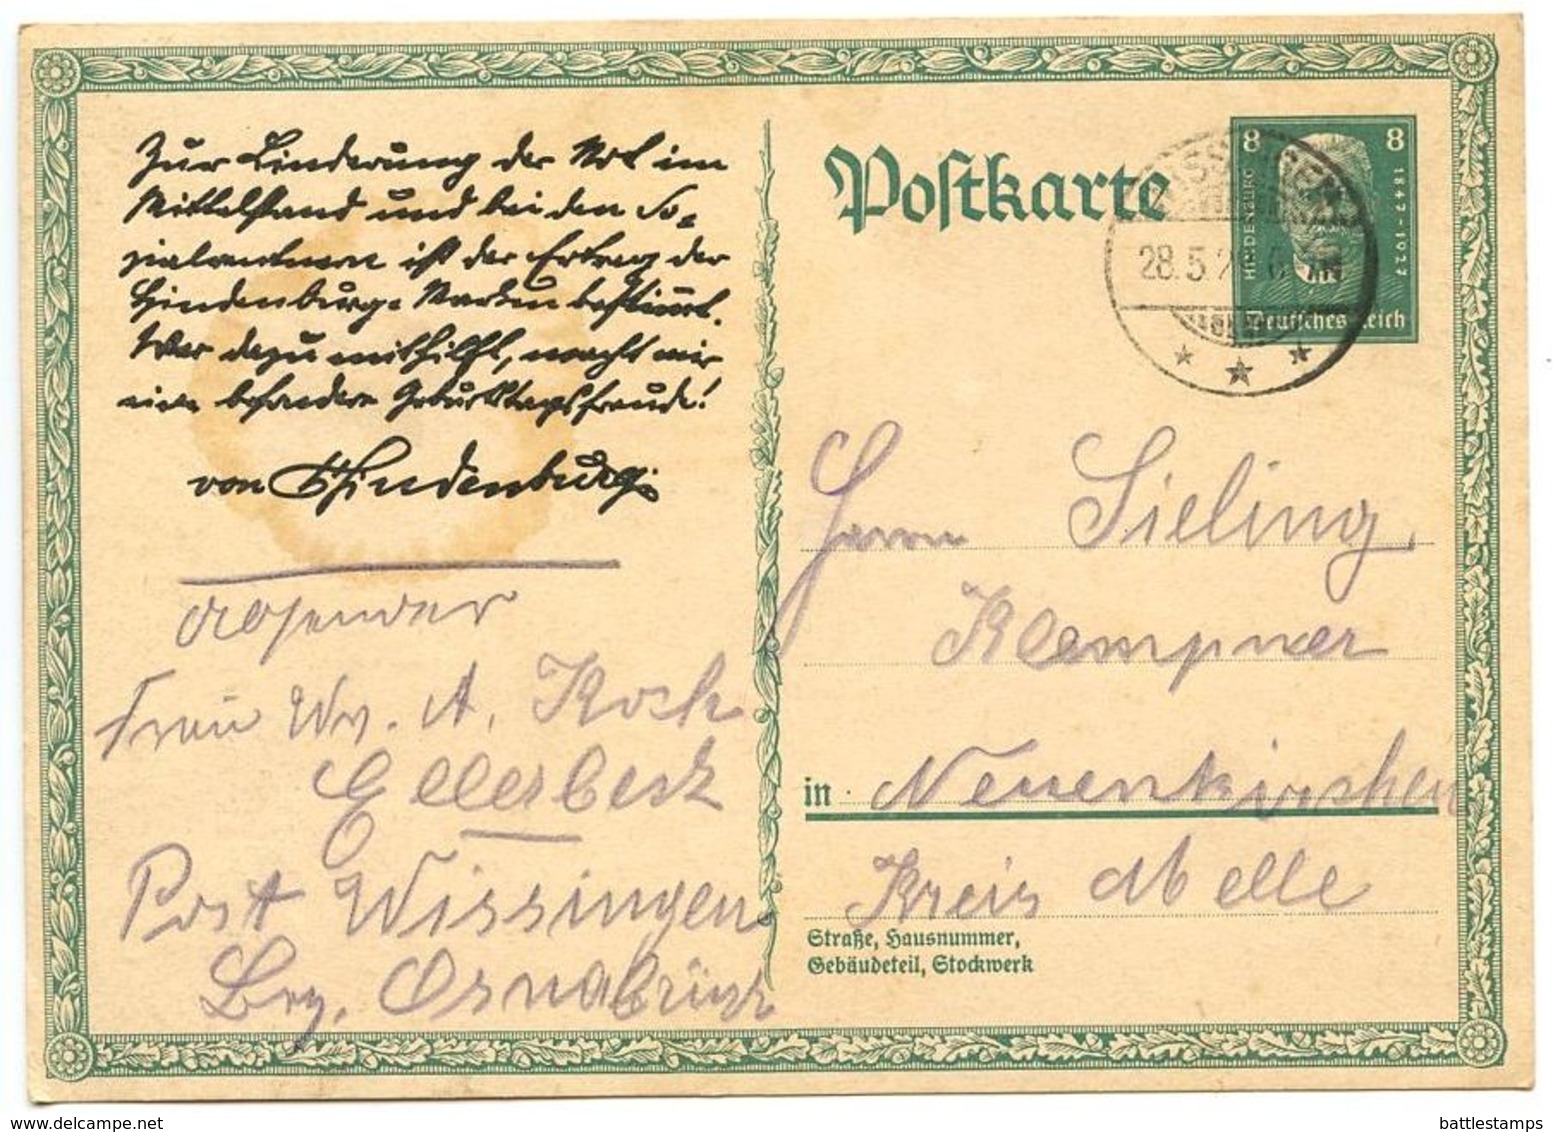 Zur Linderung der Not im
Mittelstand und bei den So-
zialrentnern ist der Ertrag der
Hindenburg-Karten bestimmt.
Wer dazu mithilft, macht mir
eine besondere Geburtstagsfreude!
von Hindenburg.
Absender
Frau Wv. A. Koch
Ellerbeck
Post Wissingen
Bez. Osnabrück
Postkarte
8 8
HINDENBURG
1847-1927
Deutsches Reich
WISSINGEN
28.5.
Herrn Sieling,
Klempner
in Neuenkirchen
Kreis Melle
Straße, Hausnummer,
Gebäudeteil, Stockwerk
delcampe.net
battlestamps